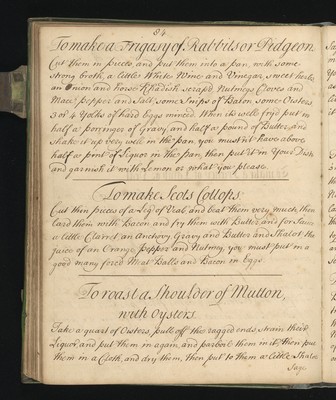 84
To make a Frigasy of Rabbits or Pidgeon
Cut them in pieces, and put them into a pan, with some
strong broth, a little White Wine and Vinegar, sweet herbs,
an Onion and horse Rhadish scrap'd Nutmegs Cloves and
Mace pepper and Salt, some Snips of Bacon, some Oysters
3 or 4 Yolks of hard Eggs minced When its well fry'd put in
half a porringer of Gravy, and half a pound of Butter, and
Shake it up very well in the pan, you must n't have above
half a pint of Liquor in the pan, then put it in Your Dish
and garnish it with Lemon or what you please.
To make Scots Collops.
Cut thin pieces of a Leg of Veal and beat them very much, then
lard them with Bacon and fry them with Butter, and for Sauce
a little Claret an Anchovy, Gravy and Butter and Shalot the
juice of an Orange, pepper and Nutmeg, you must put in a
good many forced Meat Balls and Bacon in Eggs
To roast a Shoulder of Mutton,
with Oysters.
Take a quart of Oysters, pull off the ragged ends strain their
Liquor, and put them in again, and parboil them in it, then put
them in a Cloth, and dry them, then put to them a little Shalot
Sage